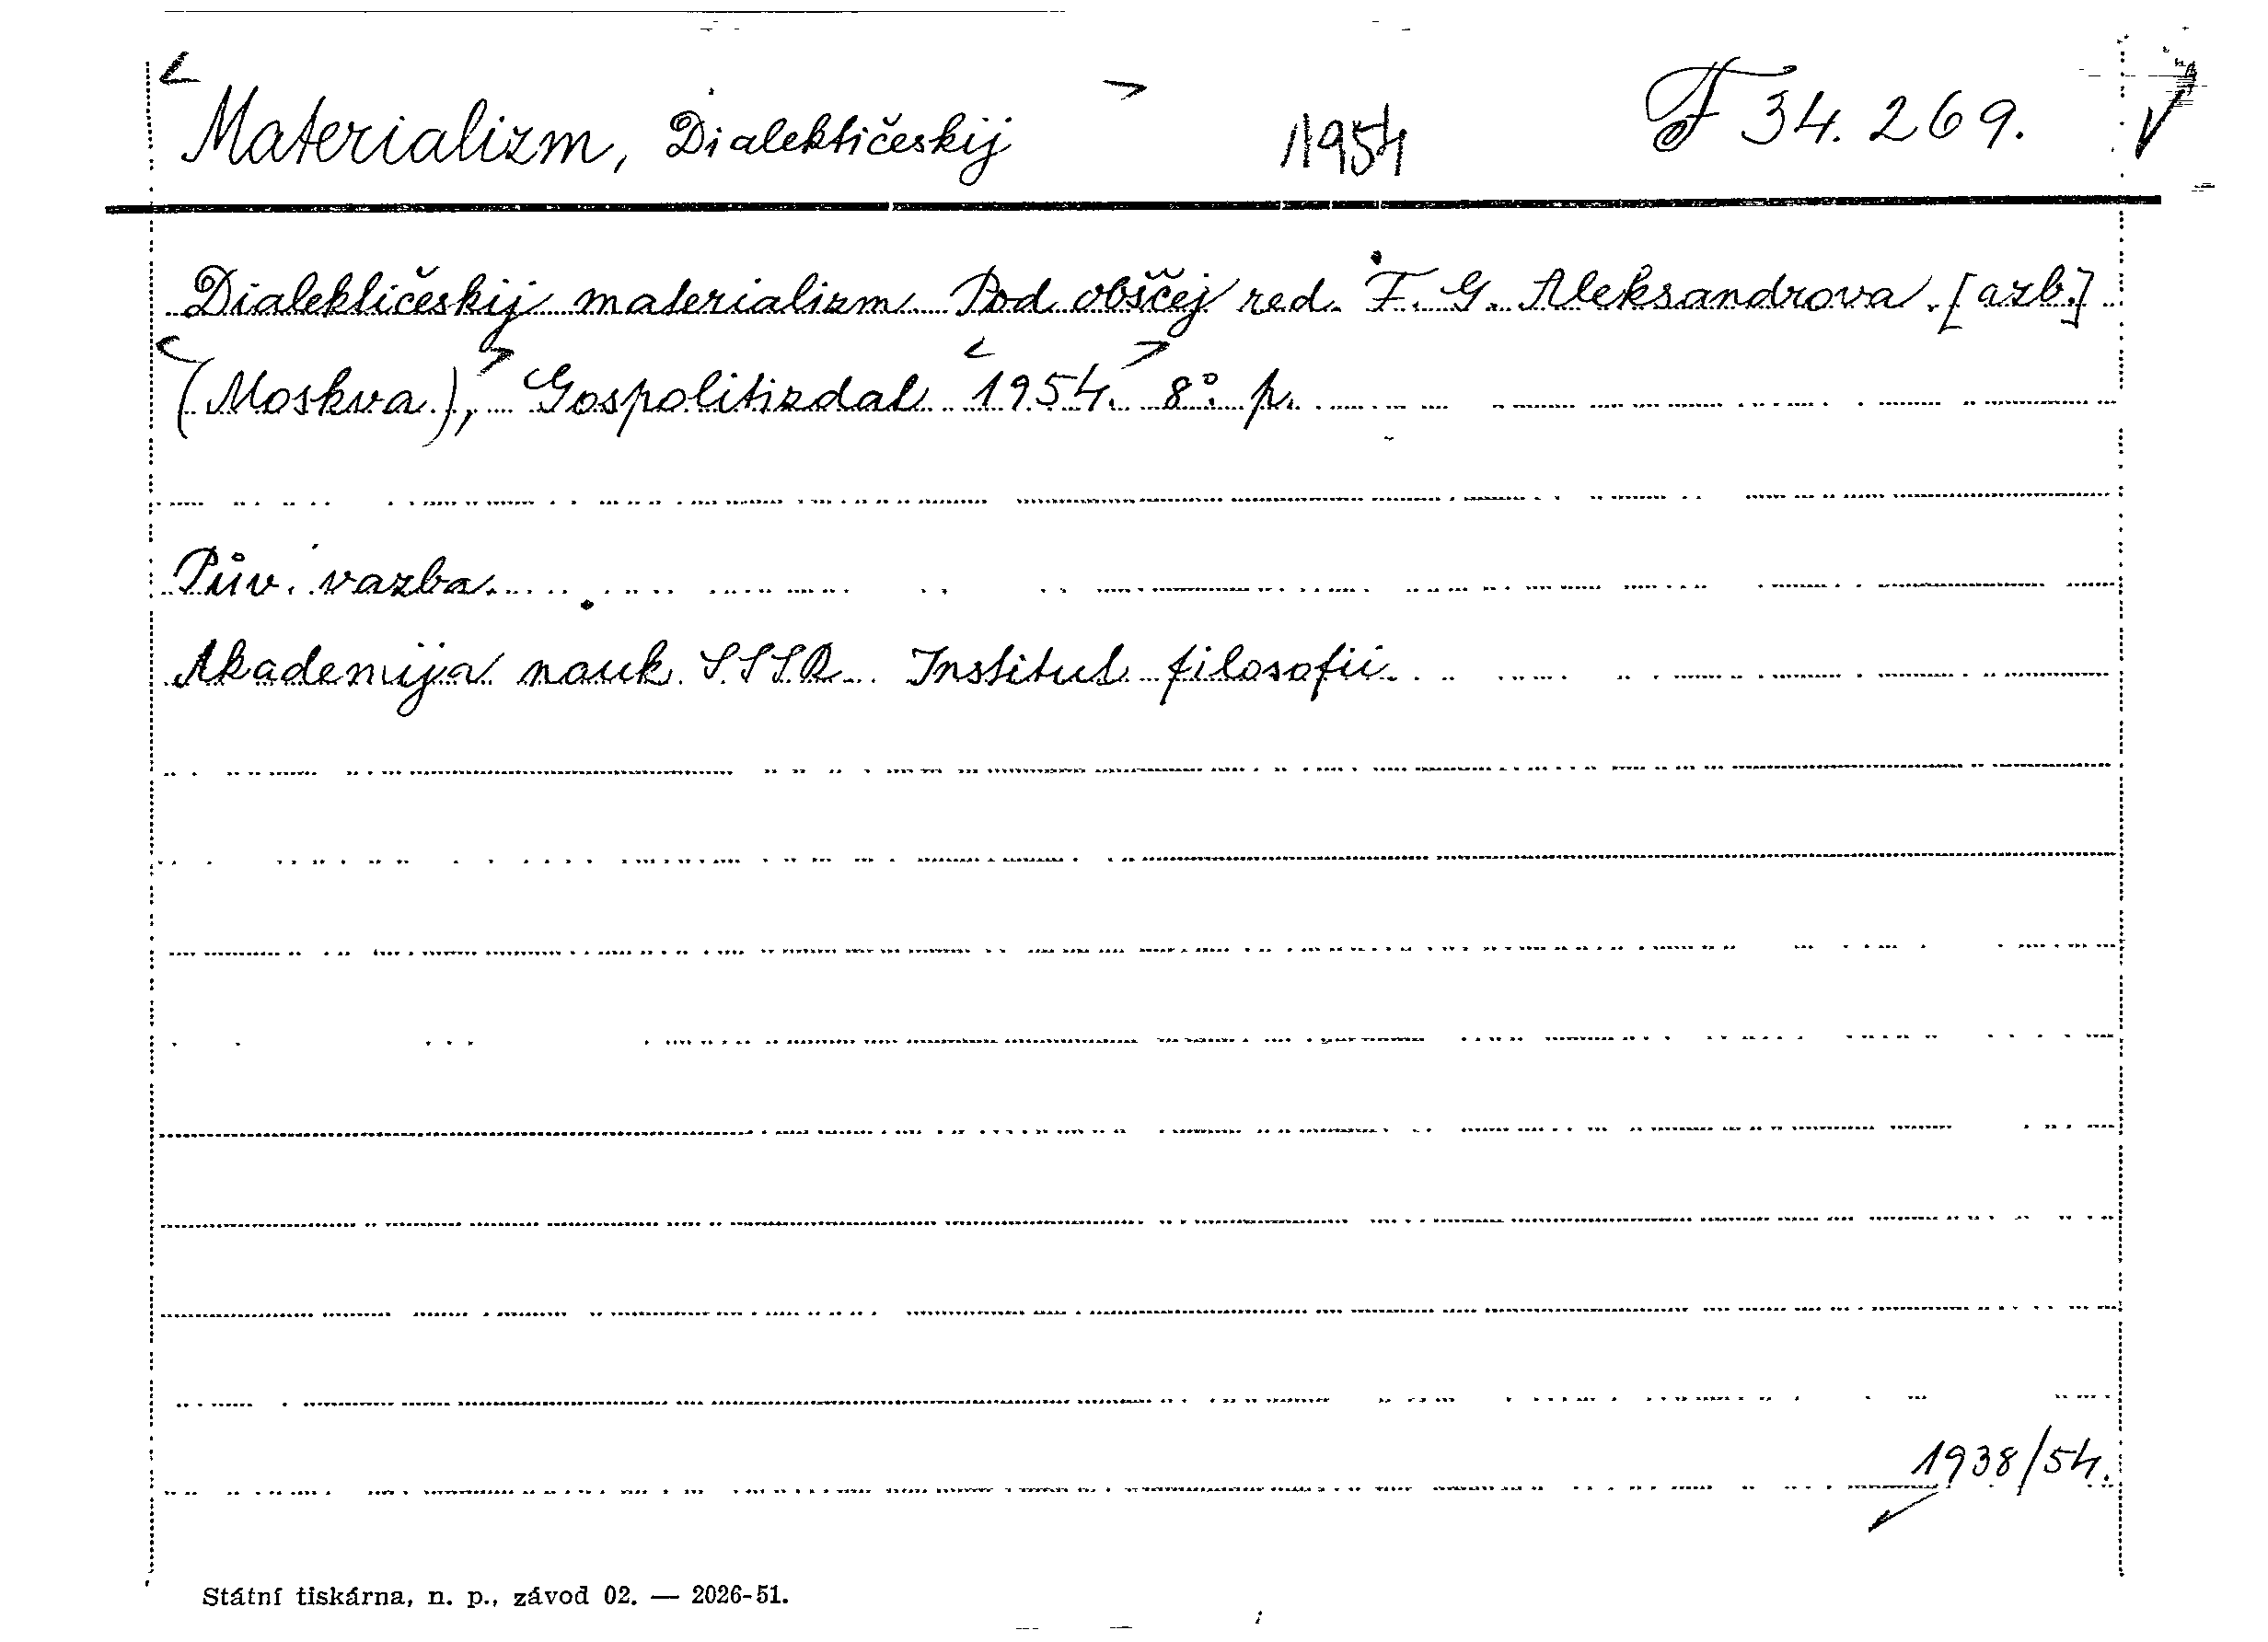 <Materializm, Dialektičeskij> 1954 F 34.269.
Dialektičeskij materializm. Pod obščej red. F. G. Aleksandrova. [azb.]
<(Moskva),> Gospolitizdat <1954.> 8°. p.
Pův. vazba.
Akademija nauk SSSR. Institut filosofii.
1938/54.
Státní tiskárna, n. p., závod 02. — 2026-51.